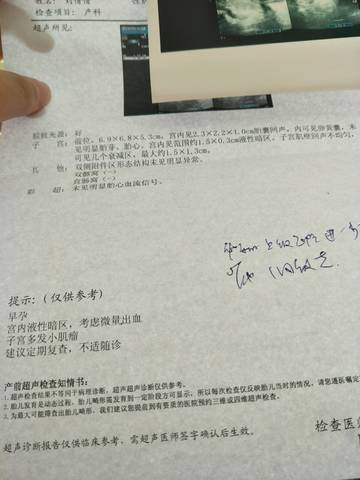 检查项目：产科
超声所见：
脏器光源：好
子 宫：前位，6.9×6.8×5.3cm，宫内见2.3×2.2×1.0cm胎囊回声，内可见卵黄囊，未
见明显胎芽、胎心。宫内见范围约1.5×0.3cm液性暗区。子宫肌壁回声不均匀，
可见几个衰减区，最大约1.5×1.3cm。
其 他：双侧附件区形态结构未见明显异常。
双髂窝（-）
直肠窝（-）
彩 超：未见明显胎心血流信号。
提示：（仅供参考）
早孕
宫内液性暗区，考虑微量出血
子宫多发小肌瘤
建议定期复查，不适随诊
产前超声检查知情书：
1.超声检查结果不等同于病理诊断，超声超声诊断仅供参考。
2.胎儿发育是动态过程，胎儿畸形需发育到一定阶段方可显示，所以每次检查仅反映胎儿当时的情况，请您遵医嘱定
3.为最大可能筛查出胎儿畸形，我们建议您提前到有资质的医院预约三维或四维超声检查。
超声诊断报告仅供临床参考，需超声医师签字确认后生效。
检查医